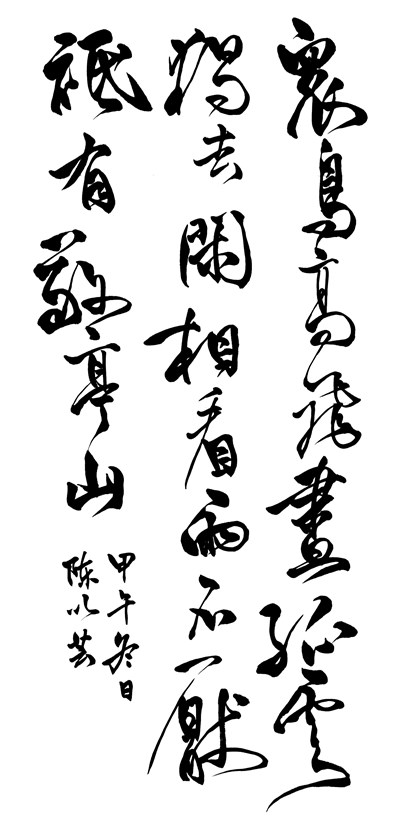 眾鳥高飛盡孤雲
獨去閑相看兩不厭
祗有敬亭山
甲午冬日
陈以芸